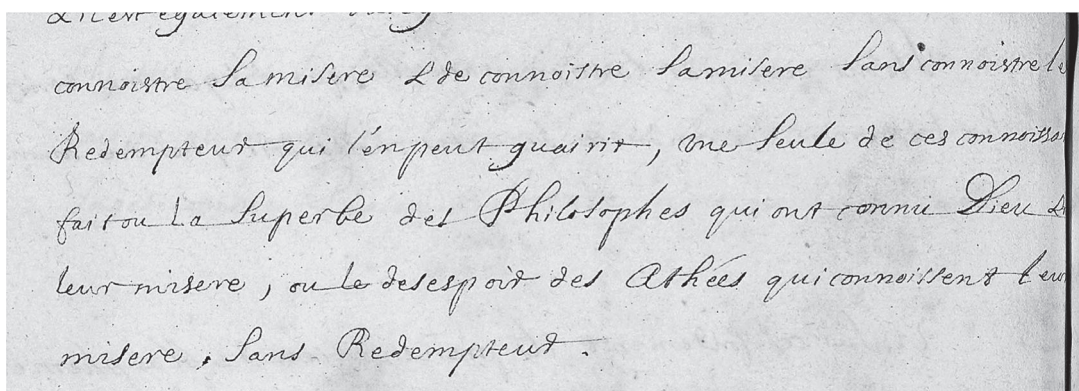 & il est également
connoistre sa misere & de connoistre sa misere sans connoistre le
Redempteur qui l'en peut guairir, une seule de ces connoissa
fait ou la superbe des Philosophes qui ont connu Dieu &
leur misere, ou le desespoir des Athées qui connoissent leur
misere, sans Redempteur.